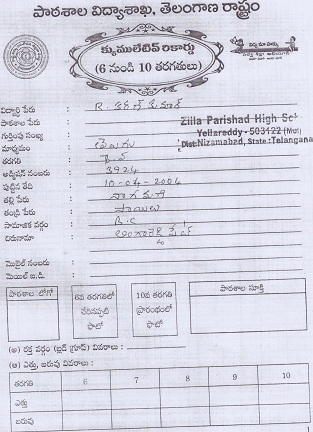 పాఠశాల విద్యాశాఖ, తెలంగాణ రాష్ట్రం
క్యుములేటివ్ రికార్డు
(6 నుండి 10 తరగతులు)
విద్యార్థి పేరు :
పాఠశాల పేరు : Zilla Parishad High Sc
గుర్తింపు సంఖ్య : Yellareddy - 503122 (Mdl)
మాధ్యమం : Dist:Nizamabad, State:Telangana
తరగతి :
అడ్మిషన్ నంబరు : 3924
పుట్టిన తేది : 10-04-2004
తల్లి పేరు : నాగమణి
తండ్రి పేరు : సాయిలు
సామాజిక వర్గం : B.C
చిరునామా :
మొబైల్ నంబరు :
మెయిల్ ఐ.డి. :
పాఠశాల లోగో
6వ తరగతిలో చేరినప్పటి ఫొటో
10వ తరగతి ప్రారంభంలో ఫొటో
పాఠశాల సూక్తి
(అ) రక్త వర్గం (బ్లడ్ గ్రూప్) వివరాలు :
(ఆ) ఎత్తు, బరువు వివరాలు :
తరగతి 6 7 8 9 10
ఎత్తు
బరువు
1